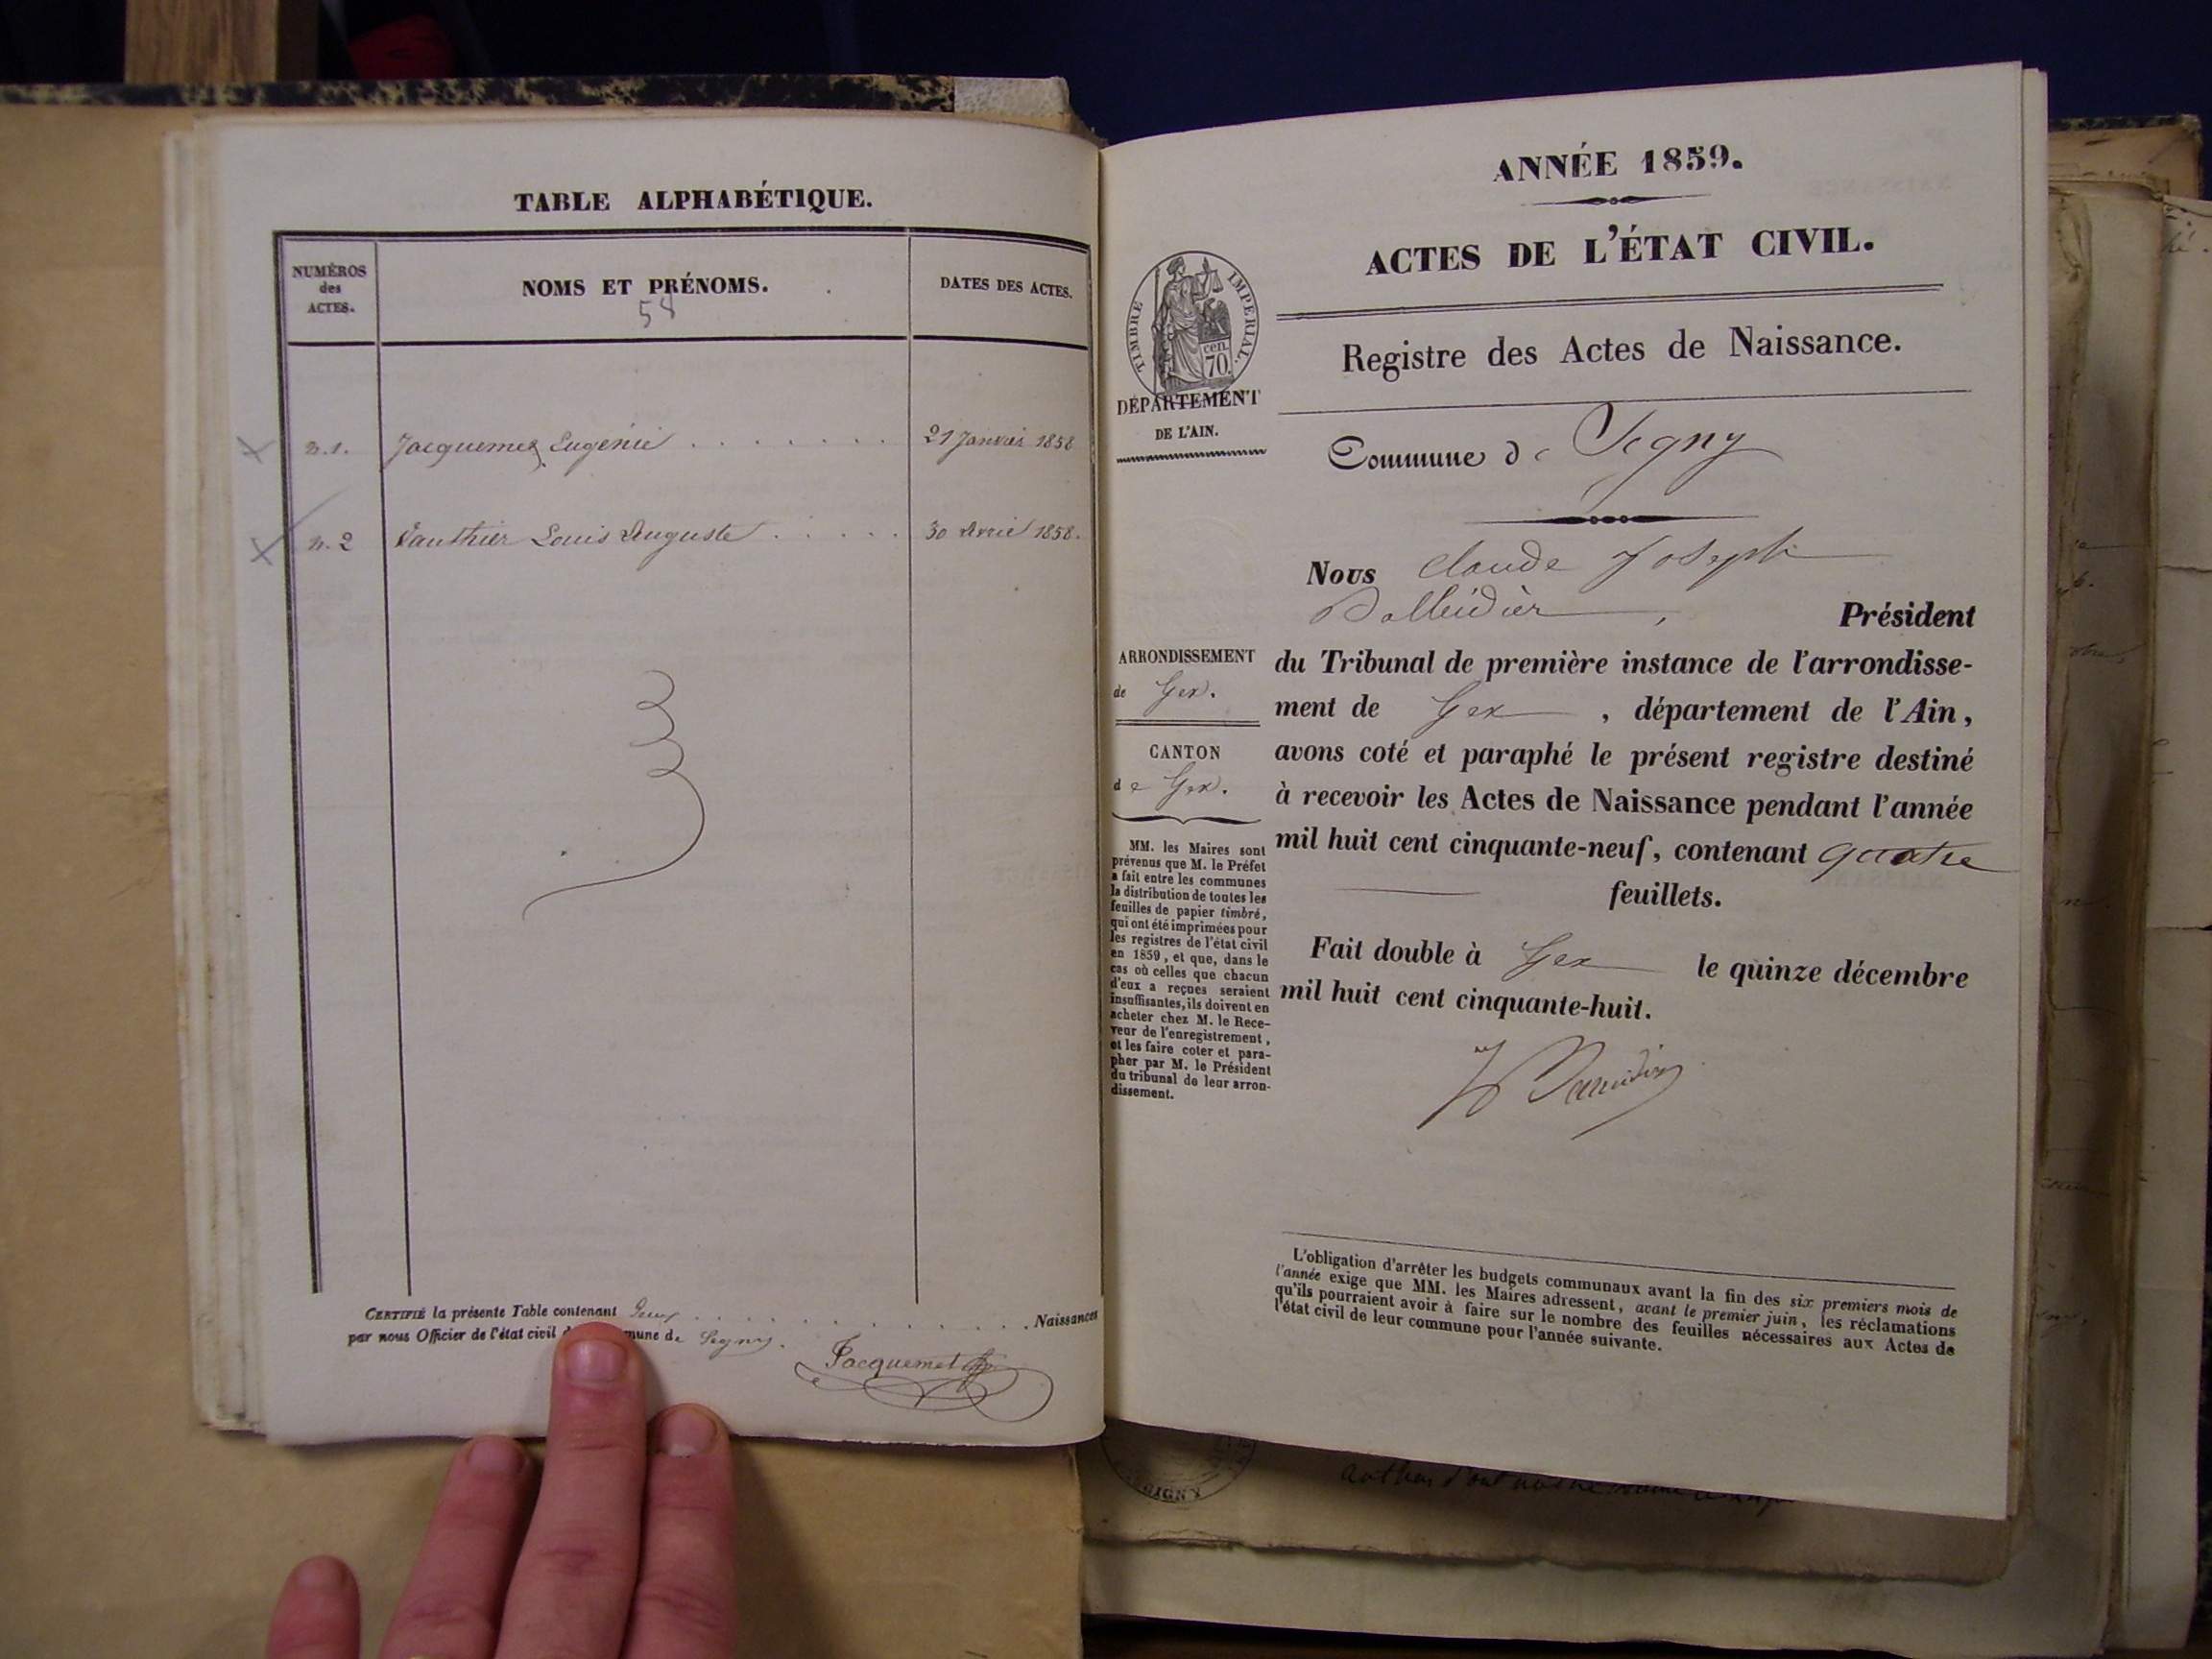 TABLE ALPHABÉTIQUE.
NUMÉROS
des
ACTES.
NOMS ET PRÉNOMS.
58
DATES DES ACTES.
n.1. Jacquemet Eugénie . . . . . . . 21 Janvier 1858
n.2 Vauthier Louis Auguste . . . . . 30 Avril 1858.
CERTIFIÉ la présente Table contenant Deux . . . . . . . . . . . . Naissances
par nous Officier de l'état civil d mune de Segny.
Jacquemet
ANNÉE 1859.
ACTES DE L'ÉTAT CIVIL.
Registre des Actes de Naissance.
TIMBRE IMPERIAL.
cen.
70.
DÉPARTEMENT
DE L'AIN.
Commune de Segny
Nous Claude Joseph
, Président
ARRONDISSEMENT
de Gex.
CANTON
de Gex.
du Tribunal de première instance de l'arrondisse-
ment de Gex , département de l'Ain,
avons coté et paraphé le présent registre destiné
à recevoir les Actes de Naissance pendant l'année
mil huit cent cinquante-neuf, contenant quatre
feuillets.
Fait double à Gex le quinze décembre
mil huit cent cinquante-huit.
MM. les Maires sont
prévenus que M. le Préfet
a fait entre les communes
la distribution de toutes les
feuilles de papier timbré,
qui ont été imprimées pour
les registres de l'état civil
en 1859, et que, dans le
cas où celles que chacun
d'eux a reçues seraient
insuffisantes, ils doivent en
acheter chez M. le Rece-
veur de l'enregistrement,
et les faire coter et para-
pher par M. le Président
du tribunal de leur arron-
dissement.
L'obligation d'arrêter les budgets communaux avant la fin des six premiers mois de
l'année exige que MM. les Maires adressent, avant le premier juin, les réclamations
qu'ils pourraient avoir à faire sur le nombre des feuilles nécessaires aux Actes de
l'état civil de leur commune pour l'année suivante.